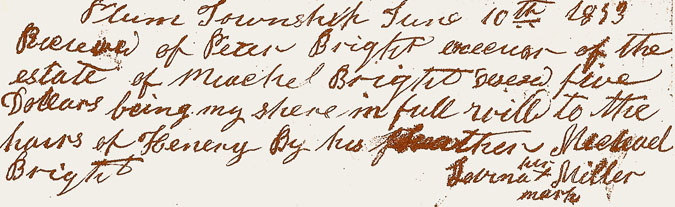 Plum Township June 10th 1853
Received of Peter Bright execuar of the
estate of Miachel Bright five
Dollars being my shere in full to the
hairs of Henery By his Michael
Bright
Lovina his x Miller
mark